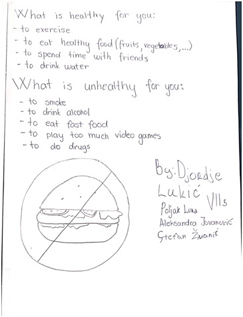 What is healthy for you:
- to exercise
- to eat healthy food (fruits, vegetables,...)
- to spend time with friends
- to drink water
What is unhealthy for you:
- to smoke
- to drink alcohol
- to eat fast food
- to play too much video games
- to do drugs
By: Djordje
Lukić
VII5
Poljak Luka
Aleksandra Jovanović
Stefan